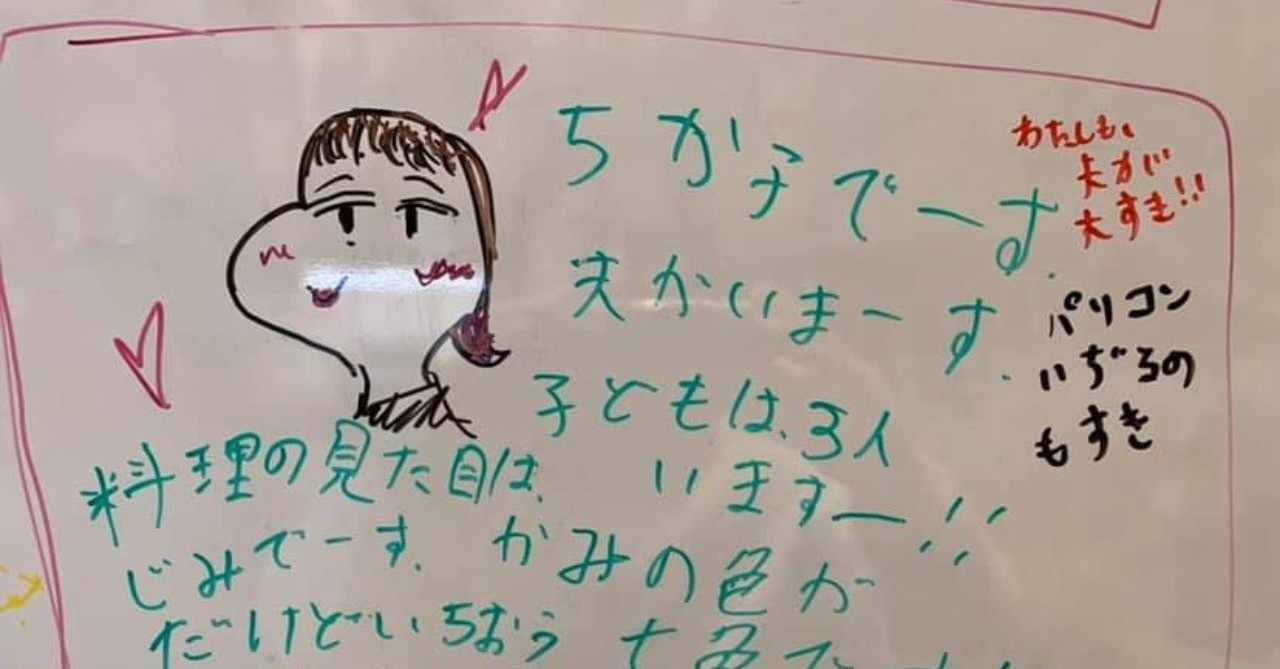 ちか子でーす
夫がいまーす.
子どもは、3人
いますー!!
料理の見た目は、
じみでーす.
だけどいちおう
かみの色が
七色で
わたしも、
夫が
大すき!!
パソコン
いぢるの
もすき